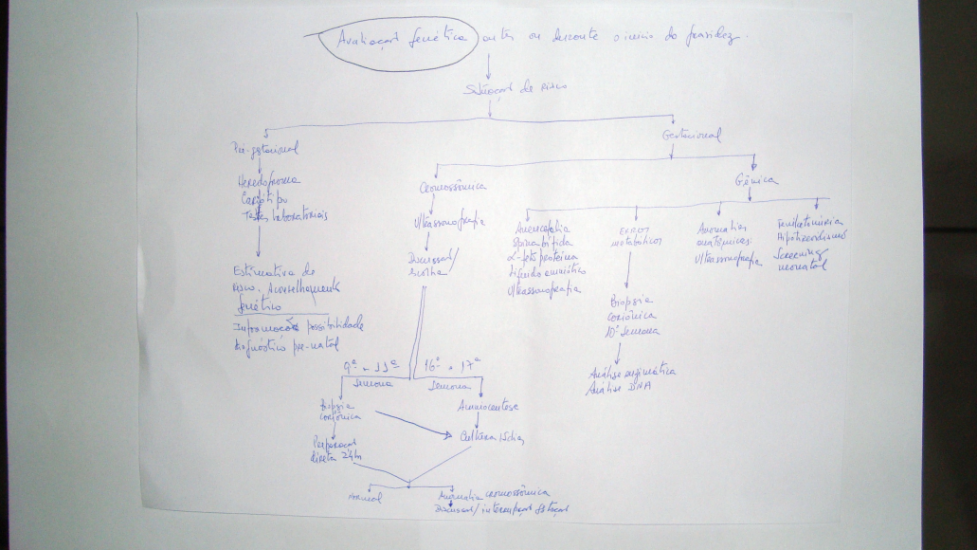 Avaliação genética antes ou durante o início da gravidez.
Situaçat de risco
Pré-gestacional
Gestacional
Heredograma
Cariótipo
Testes laboratoriais
Estimativa de
risco. Aconselhamento
genético
possibilidade
diagnóstico pré-natal
Cromossômica
Ultrassonografia
Discussat/
escolha
9ª - 11ª
semana
16ª - 17ª
semana
Biópsia
coriônica
direta 24h
Amniocentese
Cultura 15dias
normal
Anomalia cromossômica
Discussat/interrupçat
Gênica
Anencefalia
Spina bífida
α-fetoproteína
Líquido amniótico
Ultrassonografia
erros
metabólicos
Biópsia
coriônica
10ª semana
Análise enzimática
Análise DNA
Anomalias
anatômicas
Ultrassonografia
Fenilcetonúria
Hipotireoidismo
Screening
neonatal